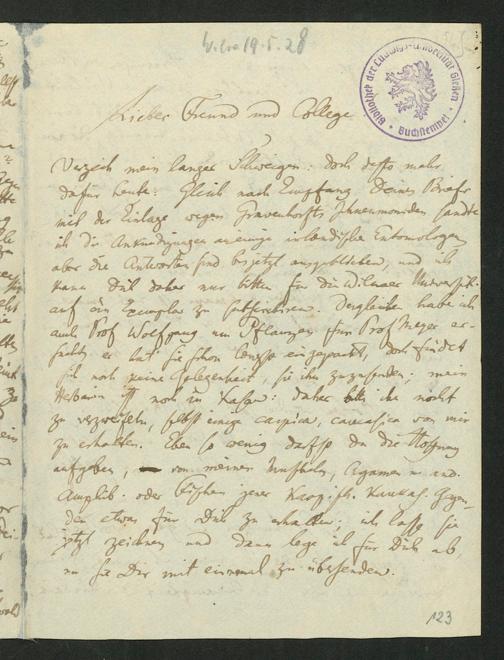 Wilna 19.5.28
Bibliothek der Ludwigs-Universität Gießen
Buchstempel
Lieber Freund und College
Verzeih mein langes Schweigen: doch desto mehr
dafür heute. Gleich nach Empfang Deines Briefs
mit der Einlage wegen Gravenhorsts Ichneumoniden sandte
ich die Ankündigungen an einige inländische Entomologen
aber die Antworten sind bis jetzt ausgeblieben, und ich
kann Dich daher nur bitten für die Wilnaer Universität
auf ein Exemplar zu subscribiren. Desgleichen habe ich
auch Prof Wolfgang um Pflanzen für Prof Meyer er-
sucht, er hat sie schon eingepackt, doch findet
sich noch keine Gelegenheit, sie ihm zuzusenden; mein
Herbarium ist noch in Kasan: daher bitte ihn nicht
zu verzweifeln, selbst einige caspica, caucasica von mir
zu erhalten. Eben so wenig darfst du die Hoffnung
aufgeben, von meinen Agamen u. and.
Amphib. oder Fischen jener Kaspisch. Kaukas. Gegen-
den etwas für Dich zu erhalten; ich lasse sie
jetzt zeichnen und dann lege ich für Dich ab,
um sie Dir mit einemal zu übersenden.
123